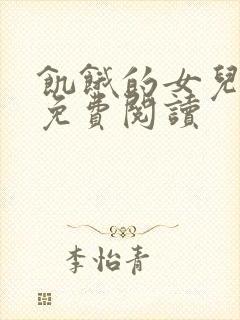 飢餓的女兒
免費閱讀
李怡青